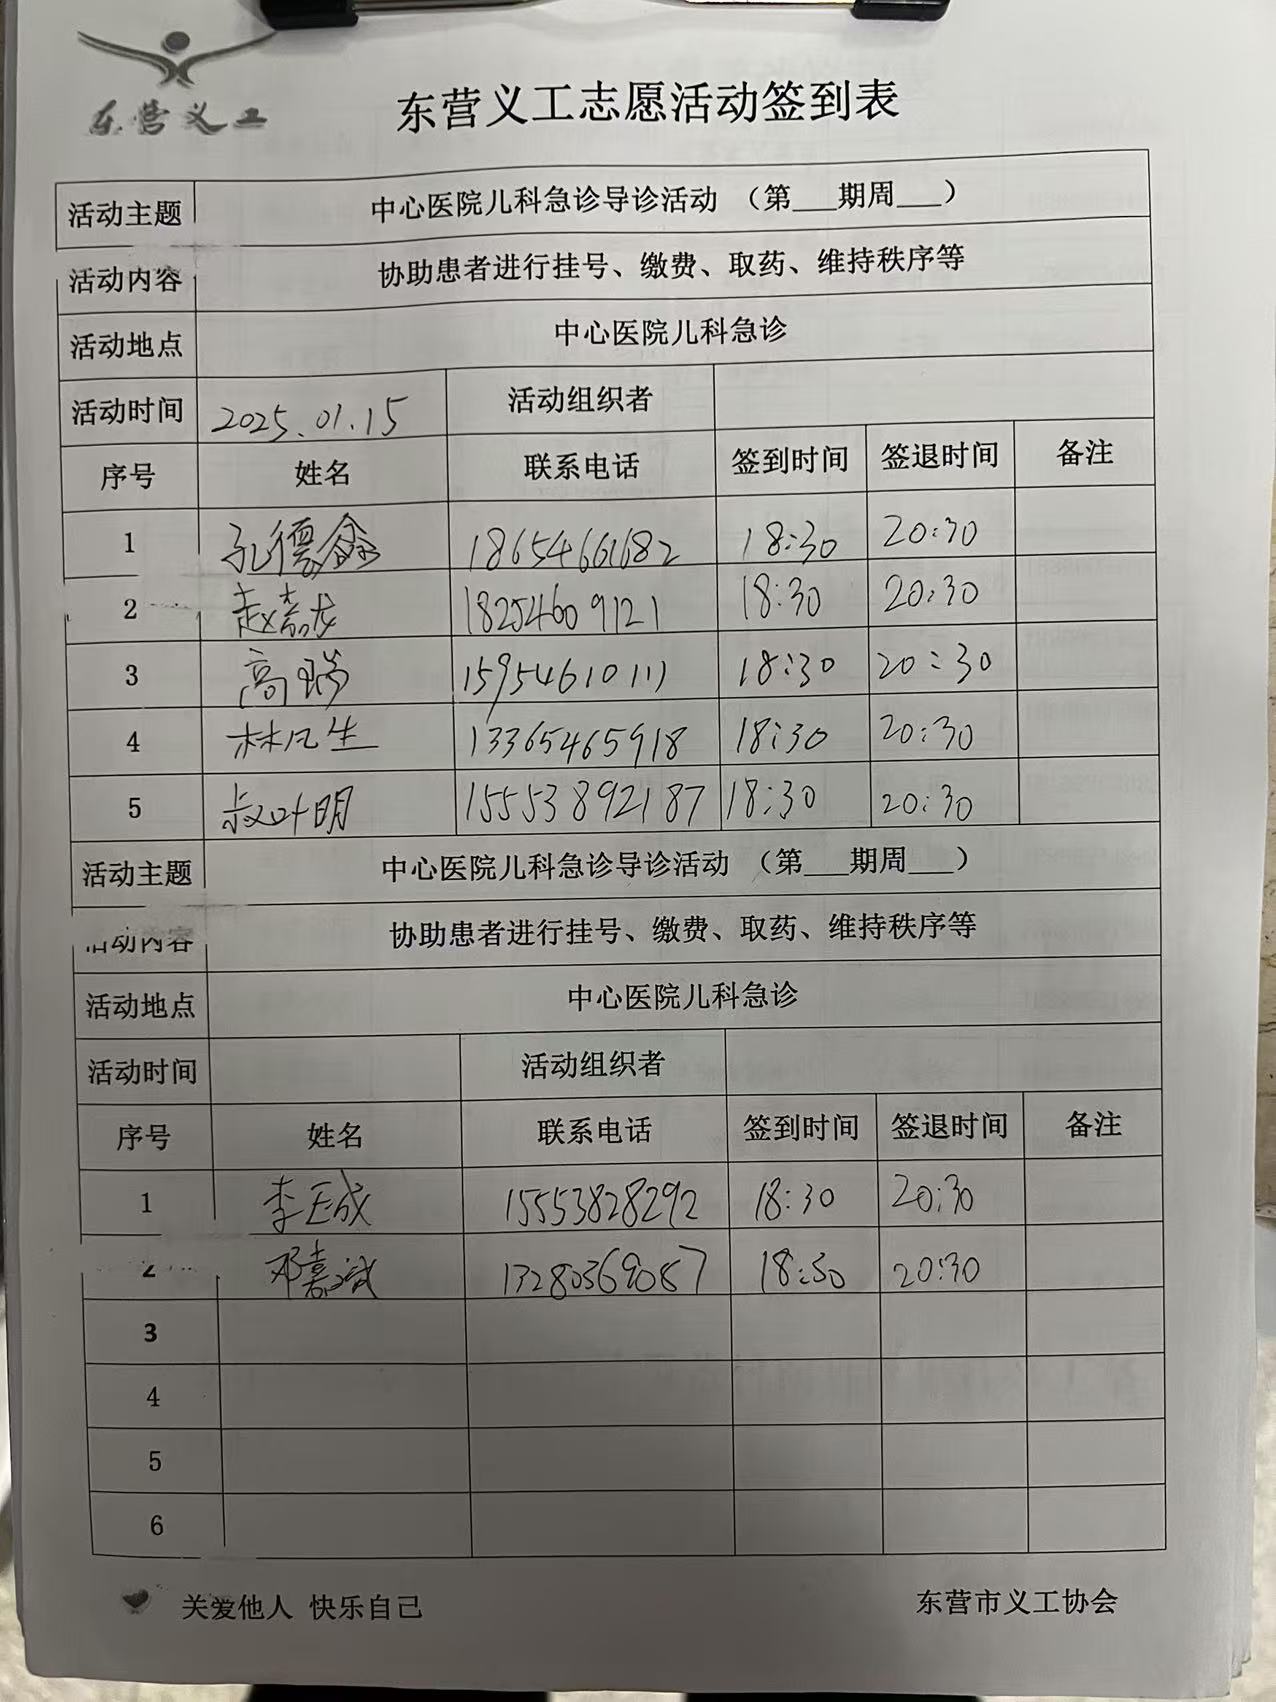 东营义工
东营义工志愿活动签到表
活动主题 中心医院儿科急诊导诊活动 （第___期周___）
活动内容 协助患者进行挂号、缴费、取药、维持秩序等
活动地点 中心医院儿科急诊
活动时间 2025.01.15 活动组织者
序号 姓名 联系电话 签到时间 签退时间 备注
1 孔德鑫 18654661682 18:30 20:30
2 赵嘉龙 18254609121 18:30 20:30
3 高瑞 15954610111 18:30 20:30
4 林凡生 13365465918 18:30 20:30
5 叶明 15553892187 18:30 20:30
活动主题 中心医院儿科急诊导诊活动 （第___期周___）
活动内容 协助患者进行挂号、缴费、取药、维持秩序等
活动地点 中心医院儿科急诊
活动时间 活动组织者
序号 姓名 联系电话 签到时间 签退时间 备注
1 李玉成 15553828292 18:30 20:30
2 邓嘉斌 13280369087 18:30 20:30
3
4
5
6
关爱他人 快乐自己 东营市义工协会